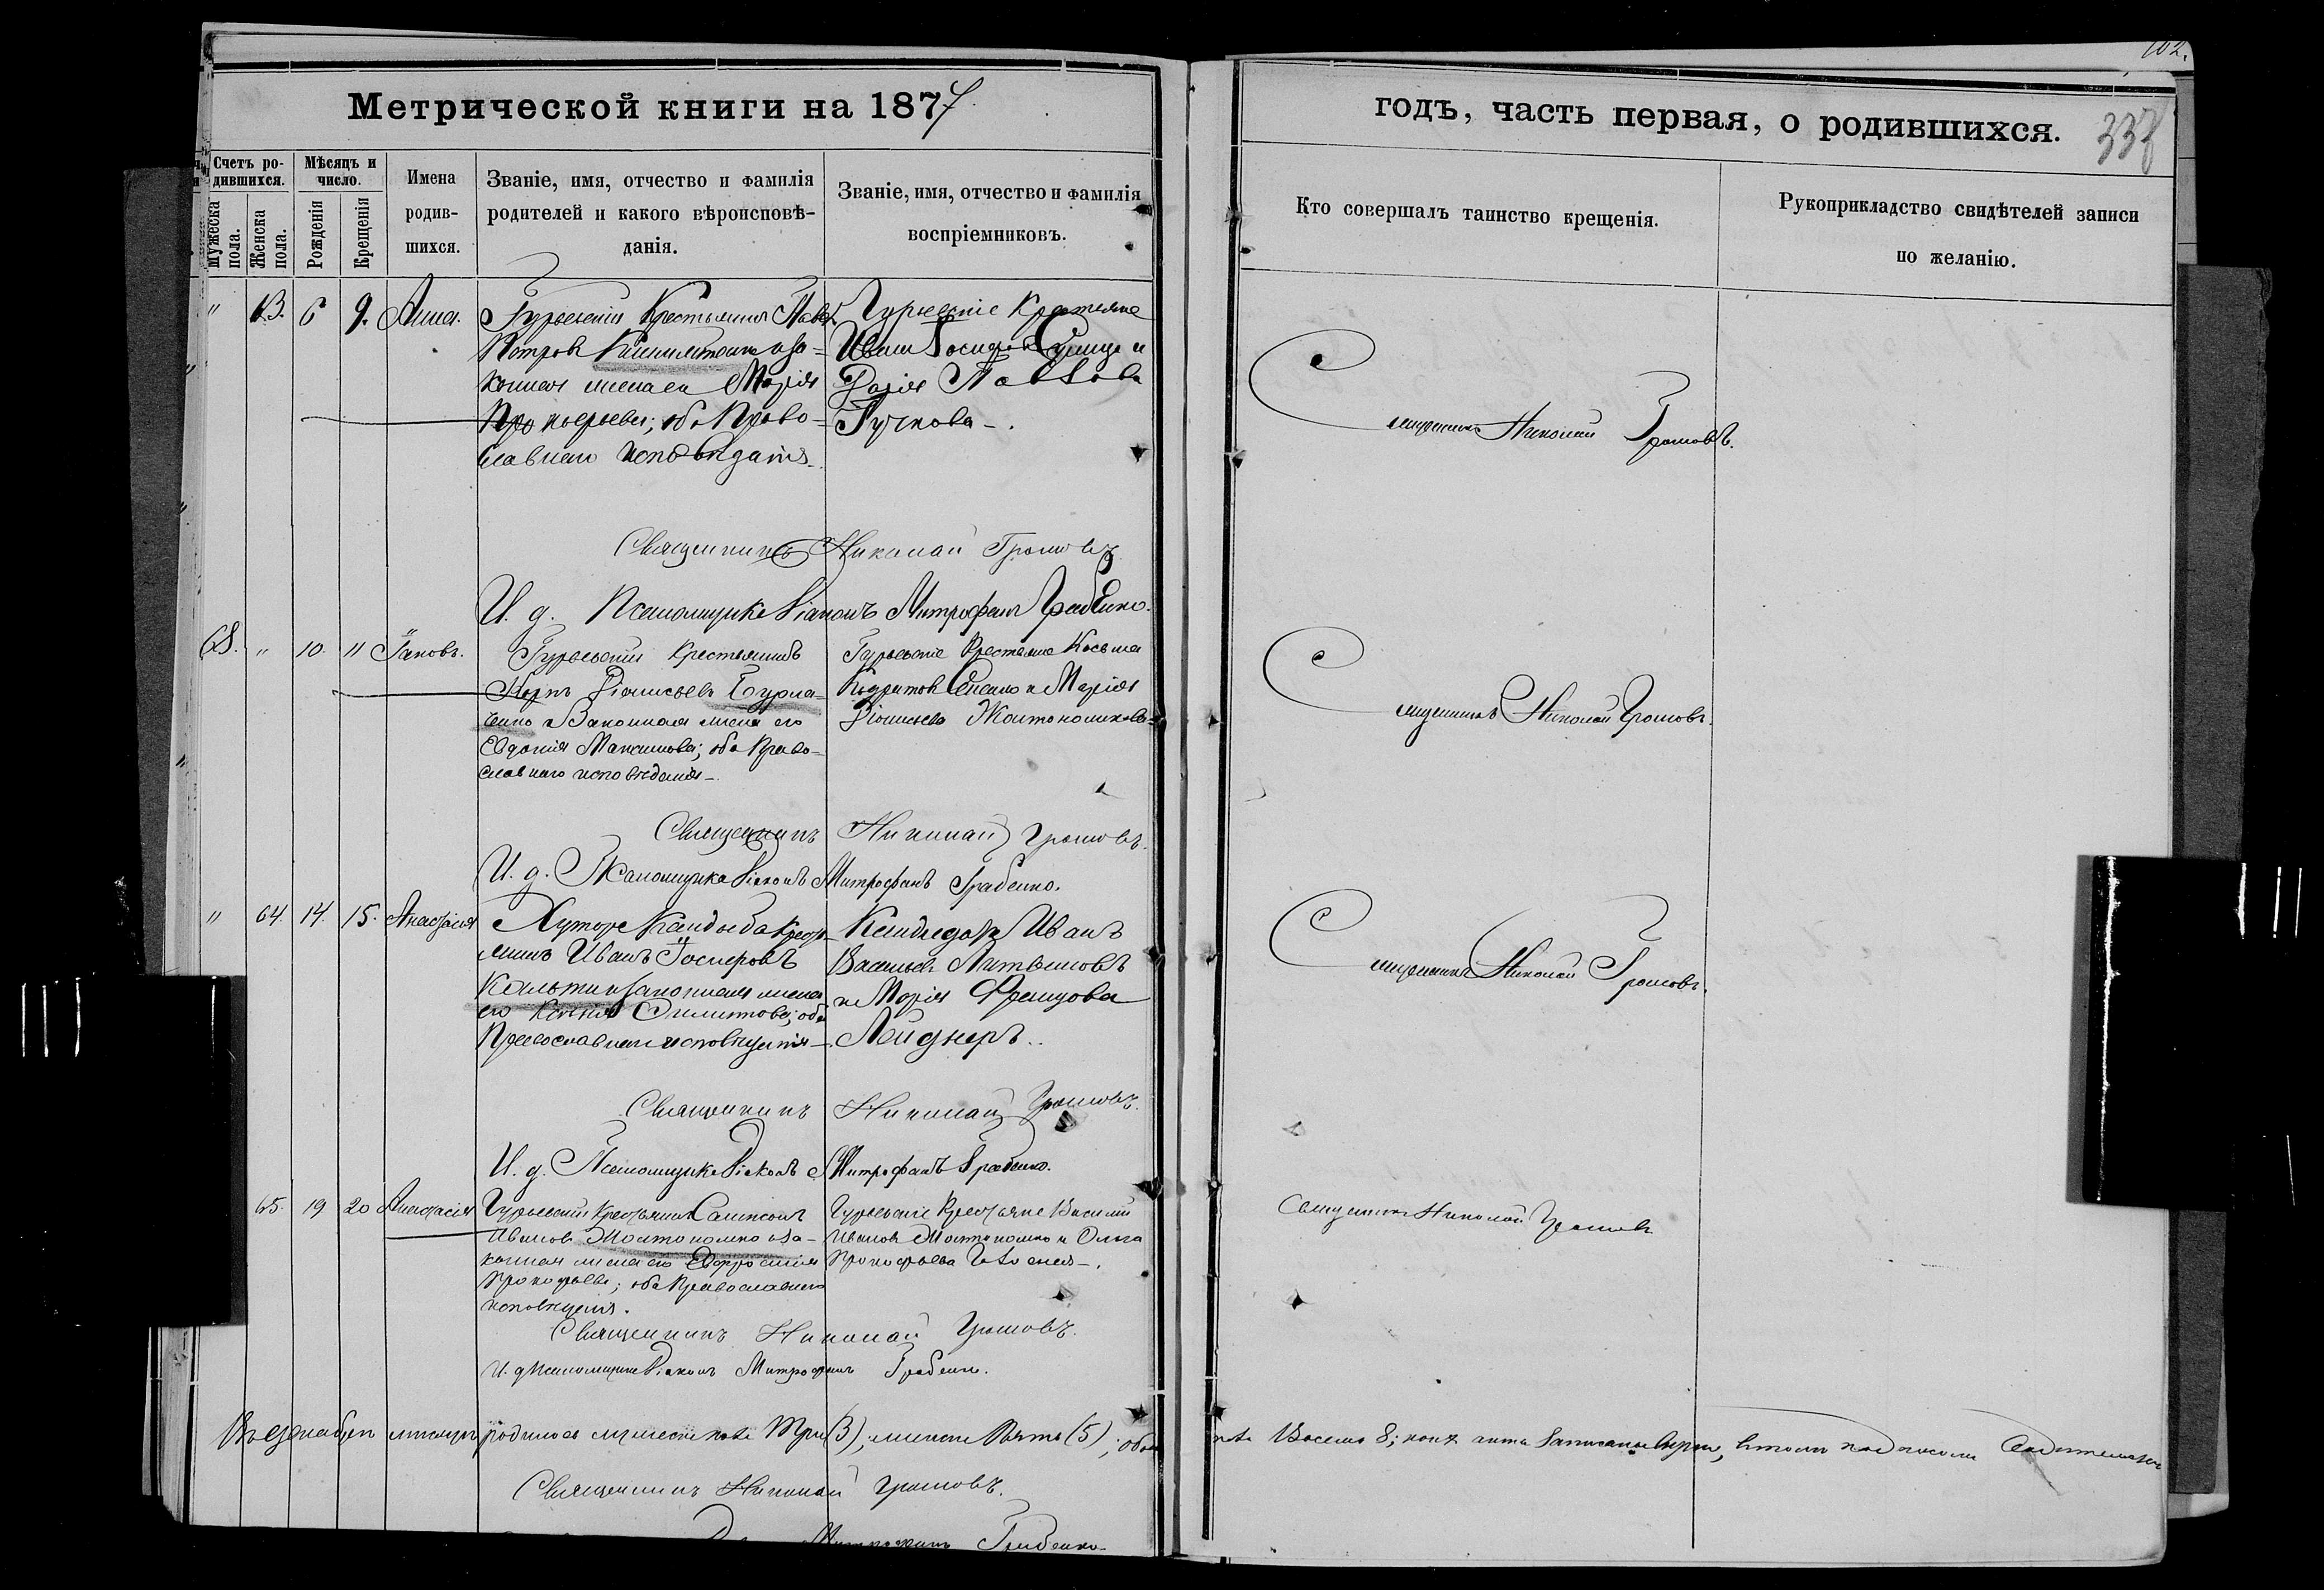 102.
Метрической книги на 1877
годъ, часть первая, о родившихся.
338
Счетъ ро-
дившихся.
Мѣсяцъ и
число.
Имена
родив-
шихся.
Званіе, имя, отчество и фамилія
родителей и какого вѣроисповѣ-
данія.
Званіе, имя, отчество и фамилія
воспріемниковъ.
Кто совершалъ таинство крещенія.
Рукоприкладство свидѣтелей записи
по желанію.
Мужеска
пола.
Женска
пола.
Рожденія
Крещенія
" 63. 6 9. Анна.
Гурьевскій Крестьянинъ Павелъ
Петровъ и за-
конная жена его Марія
Прокофьева; оба Право-
славнаго исповѣданія.
Гурьевскіе Крестьяне
Иванъ и
Павлова
Гучкова.
Священникъ Николай Громовъ.
Священникъ Николай Громовъ
И. д. Псаломщика Діаконъ Митрофанъ Грабенко.
68. " 10. 11 Іаковъ.
Гурьевскій Крестьянинъ
Карпъ Діонисьевъ Бурла-
ченко и Законная жена его
Евдокія Максимова; оба Право-
славнаго исповѣданія.
Гурьевскіе Крестьяне Косьма
и Марія
Діонисьева Жолтоножкова
Священникъ Николай Громовъ.
Священникъ Николай Громовъ.
И. д. Псаломщика Діаконъ Митрофанъ Грабенко.
" 64. 14. 15. Анастасія
Хутора Кандыба Крестья-
нинъ Иванъ
и законная жена
его Ксенія Филиппова; оба
Православнаго исповѣданія.
Иванъ
Васильевъ Литвиновъ
и Марія Францова
Лейднеръ.
Священникъ Николай Громовъ.
Священникъ Николай Громовъ.
И. д. Псаломщика Діаконъ Митрофанъ Грабенко.
65. 19 20 Анастасія
Гурьевскій Крестьянинъ Сампсонъ
Ивановъ Жолтоножко и за-
конная жена его Евфросинія
Прокофьева; оба Православнаго
исповѣданія.
Гурьевскіе Крестьяне Василій
Ивановъ Жолтоножко и Ольга
Прокофьева
Священникъ Николай Громовъ
Священникъ Николай Громовъ.
И. д. Псаломщика Діаконъ Митрофанъ Грабенко.
Въ Декабрѣ мѣсяцѣ родилось мужеска пола Три (3), женска Пять (5), обоего пола Восемь 8; коихъ акты записаны вѣрно, въ томъ подписомъ свидѣтельствуемъ
Священникъ Николай Громовъ.
Митрофанъ Грабенко